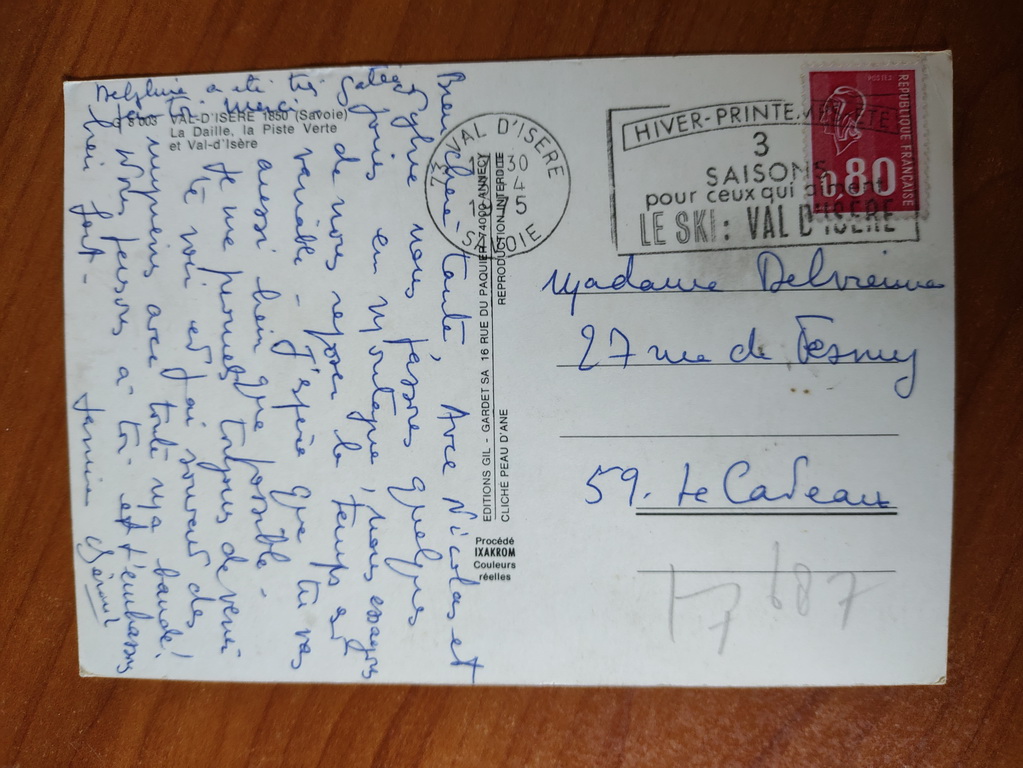 Delphine a été très gâtée
par toi merci
F 8 003 VAL-D'ISERE 1850 (Savoie)
La Daille, la Piste Verte
et Val-d'Isère
Bien chère tante, Avec Nicolas et
nous passons quelques
jours en montagne, nous essayons
de nous reposer le temps est
variable - J'espère que tu vas
aussi bien que possible -
Je me promets toujours de venir
te voir et j'ai souvent des
avec toute ma bande!
Nous pensons à toi et t'embrassons
bien fort -
EDITIONS GIL - GARDET SA 16 RUE DU PAQUIER 74000 ANNECY
CLICHÉ PEAU D'ANE REPRODUCTION INTERDITE
Procédé
IXAKROM
Couleurs
réelles
73 VAL D'ISERE
30
4
75
SAVOIE
HIVER-PRINTEMPS-ETE
3
SAISONS
pour ceux qui aiment
LE SKI: VAL D'ISERE
POSTES
REPUBLIQUE FRANÇAISE
0,80
Madame
27 rue de Fesmy
59. Le Cateau
17 687